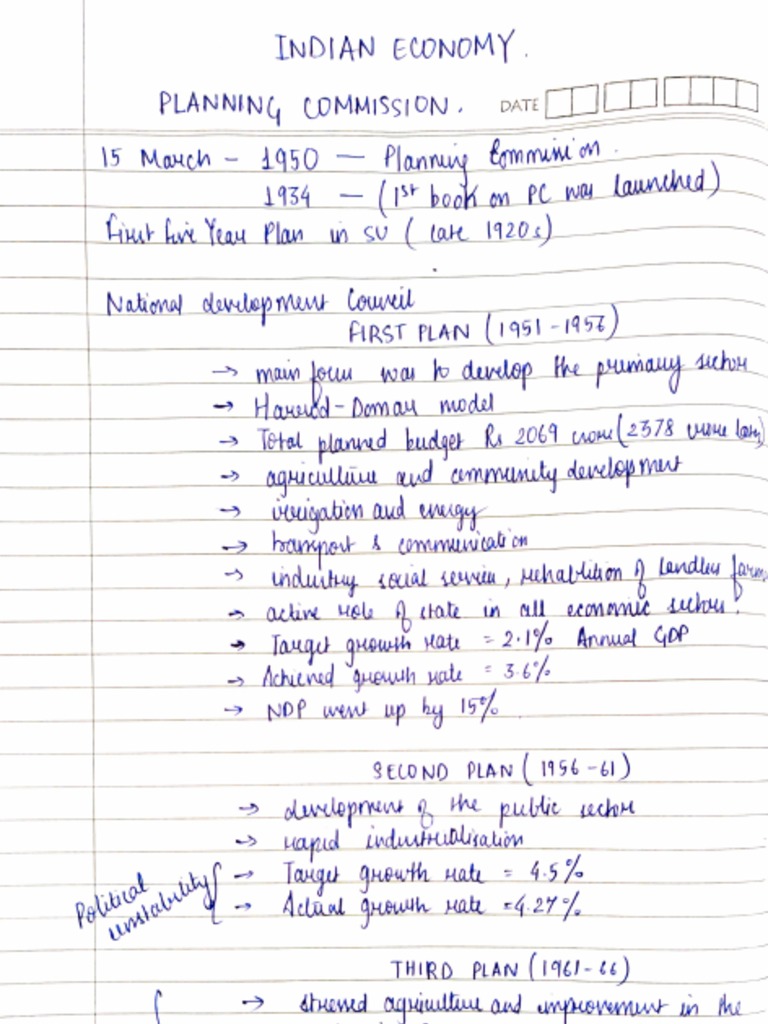 INDIAN ECONOMY.
PLANNING COMMISSION. DATE
15 March - 1950 — Planning Commission.
1934 — (1st book on PC was launched)
First Five Year Plan in SU (late 1920s)
National development Council
FIRST PLAN (1951-1956)
→ main focus was to develop the primary sector
→ Harrod-Domar model
→ Total planned budget Rs 2069 crore (2378 crore later)
→ agriculture and community development
→ irrigation and energy
→ transport & communication
→ industry social service, rehablition of landless farm
→ active role of state in all economic sectors.
→ Target growth rate = 2.1% Annual GDP
→ Achieved growth rate = 3.6%
→ NDP went up by 15%.
SECOND PLAN (1956-61)
→ development of the public sector
→ rapid industrialisation
→ Target growth rate = 4.5%
→ Actual growth rate =4.27%
Political unstability
THIRD PLAN (1961-66)
→ stressed agriculture and improvement in the